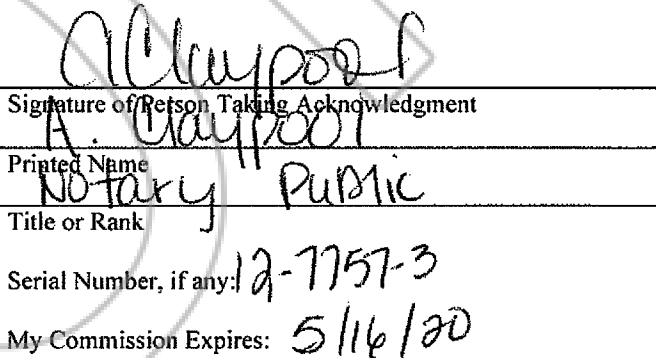 AClaypool
Signature of Person Taking Acknowledgment
A. Claypool
Printed Name
Notary Public
Title or Rank
Serial Number, if any: 12-7757-3
My Commission Expires: 5/16/20